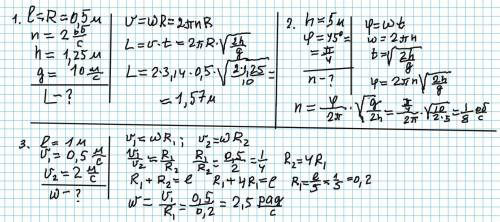 1. l=R=0,5м
n = 2 об/с
h = 1,25м
g = 10 м/с
L-?
v = ωR = 2πnR
L = v·t = 2πR·√(2h/g)
L = 2·3,14·0,5·√(2·1,25/10) =
= 1,57м
2. h = 5м
φ = 45° =
= π/4
n-?
φ = ωt
ω = 2πn
t = √(2h/g)
φ = 2πn√(2h/g)
n = φ/2π · √(g/2h) = π/4/2π · √(10/2·5) = 1/8 об/с
3. l = 1м
v₁ = 0,5 м/с
v₂ = 2 м/с
ω-?
v₁ = ωR₁; v₂ = ωR₂
v₁/v₂ = R₁/R₂ R₁/R₂ = 0,5/2 = 1/4 R₂ = 4R₁
R₁ + R₂ = l R₁ + 4R₁ = l R₁ = l/5 = 1/5 = 0,2
ω = v₁/R₁ = 0,5/0,2 = 2,5 рад/с